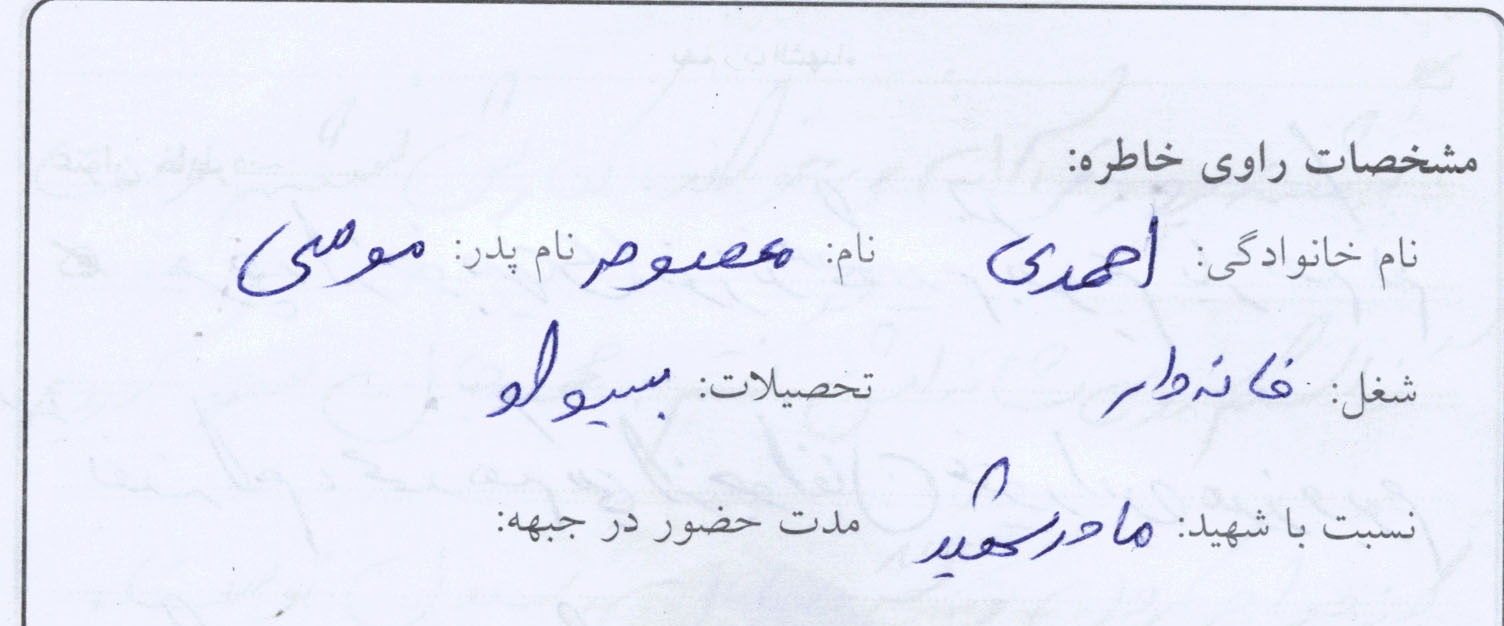 مشخصات راوی خاطره:
نام خانوادگی: احمدی نام: معصومه نام پدر: موسی
شغل: خانه‌دار تحصیلات: بیسواد
نسبت با شهید: مادر شهید مدت حضور در جبهه: